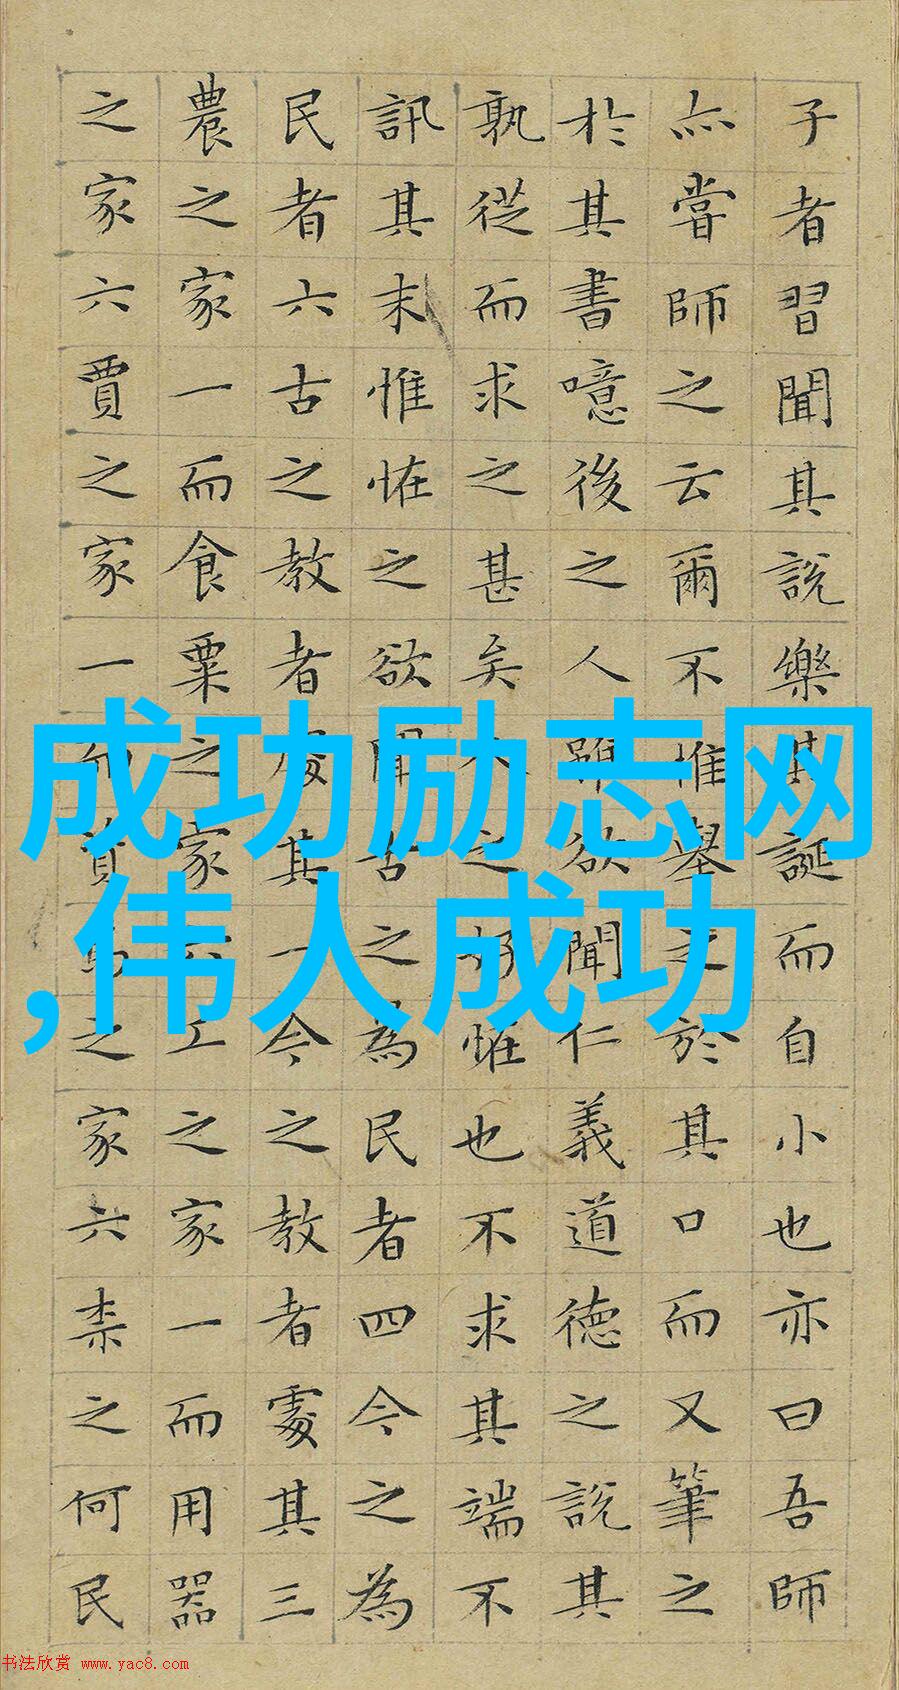 子者習聞其說樂其誕而自小也亦曰吾師
亦嘗師之云爾不惟舉之於其口而又筆之
於其書噫後之人雖欲聞仁義道德之說其
孰從而求之甚矣人之好恠也不求其端不
訊其末惟恠之欲聞古之為民者四今之為
民者六古之教者處其一今之教者處其三
農之家一而食粟之家六工之家一而用器
之家六賈之家一而資焉之家六柰之何民
成功励志网
,伟人成功
书法欣赏 www.yac8.com